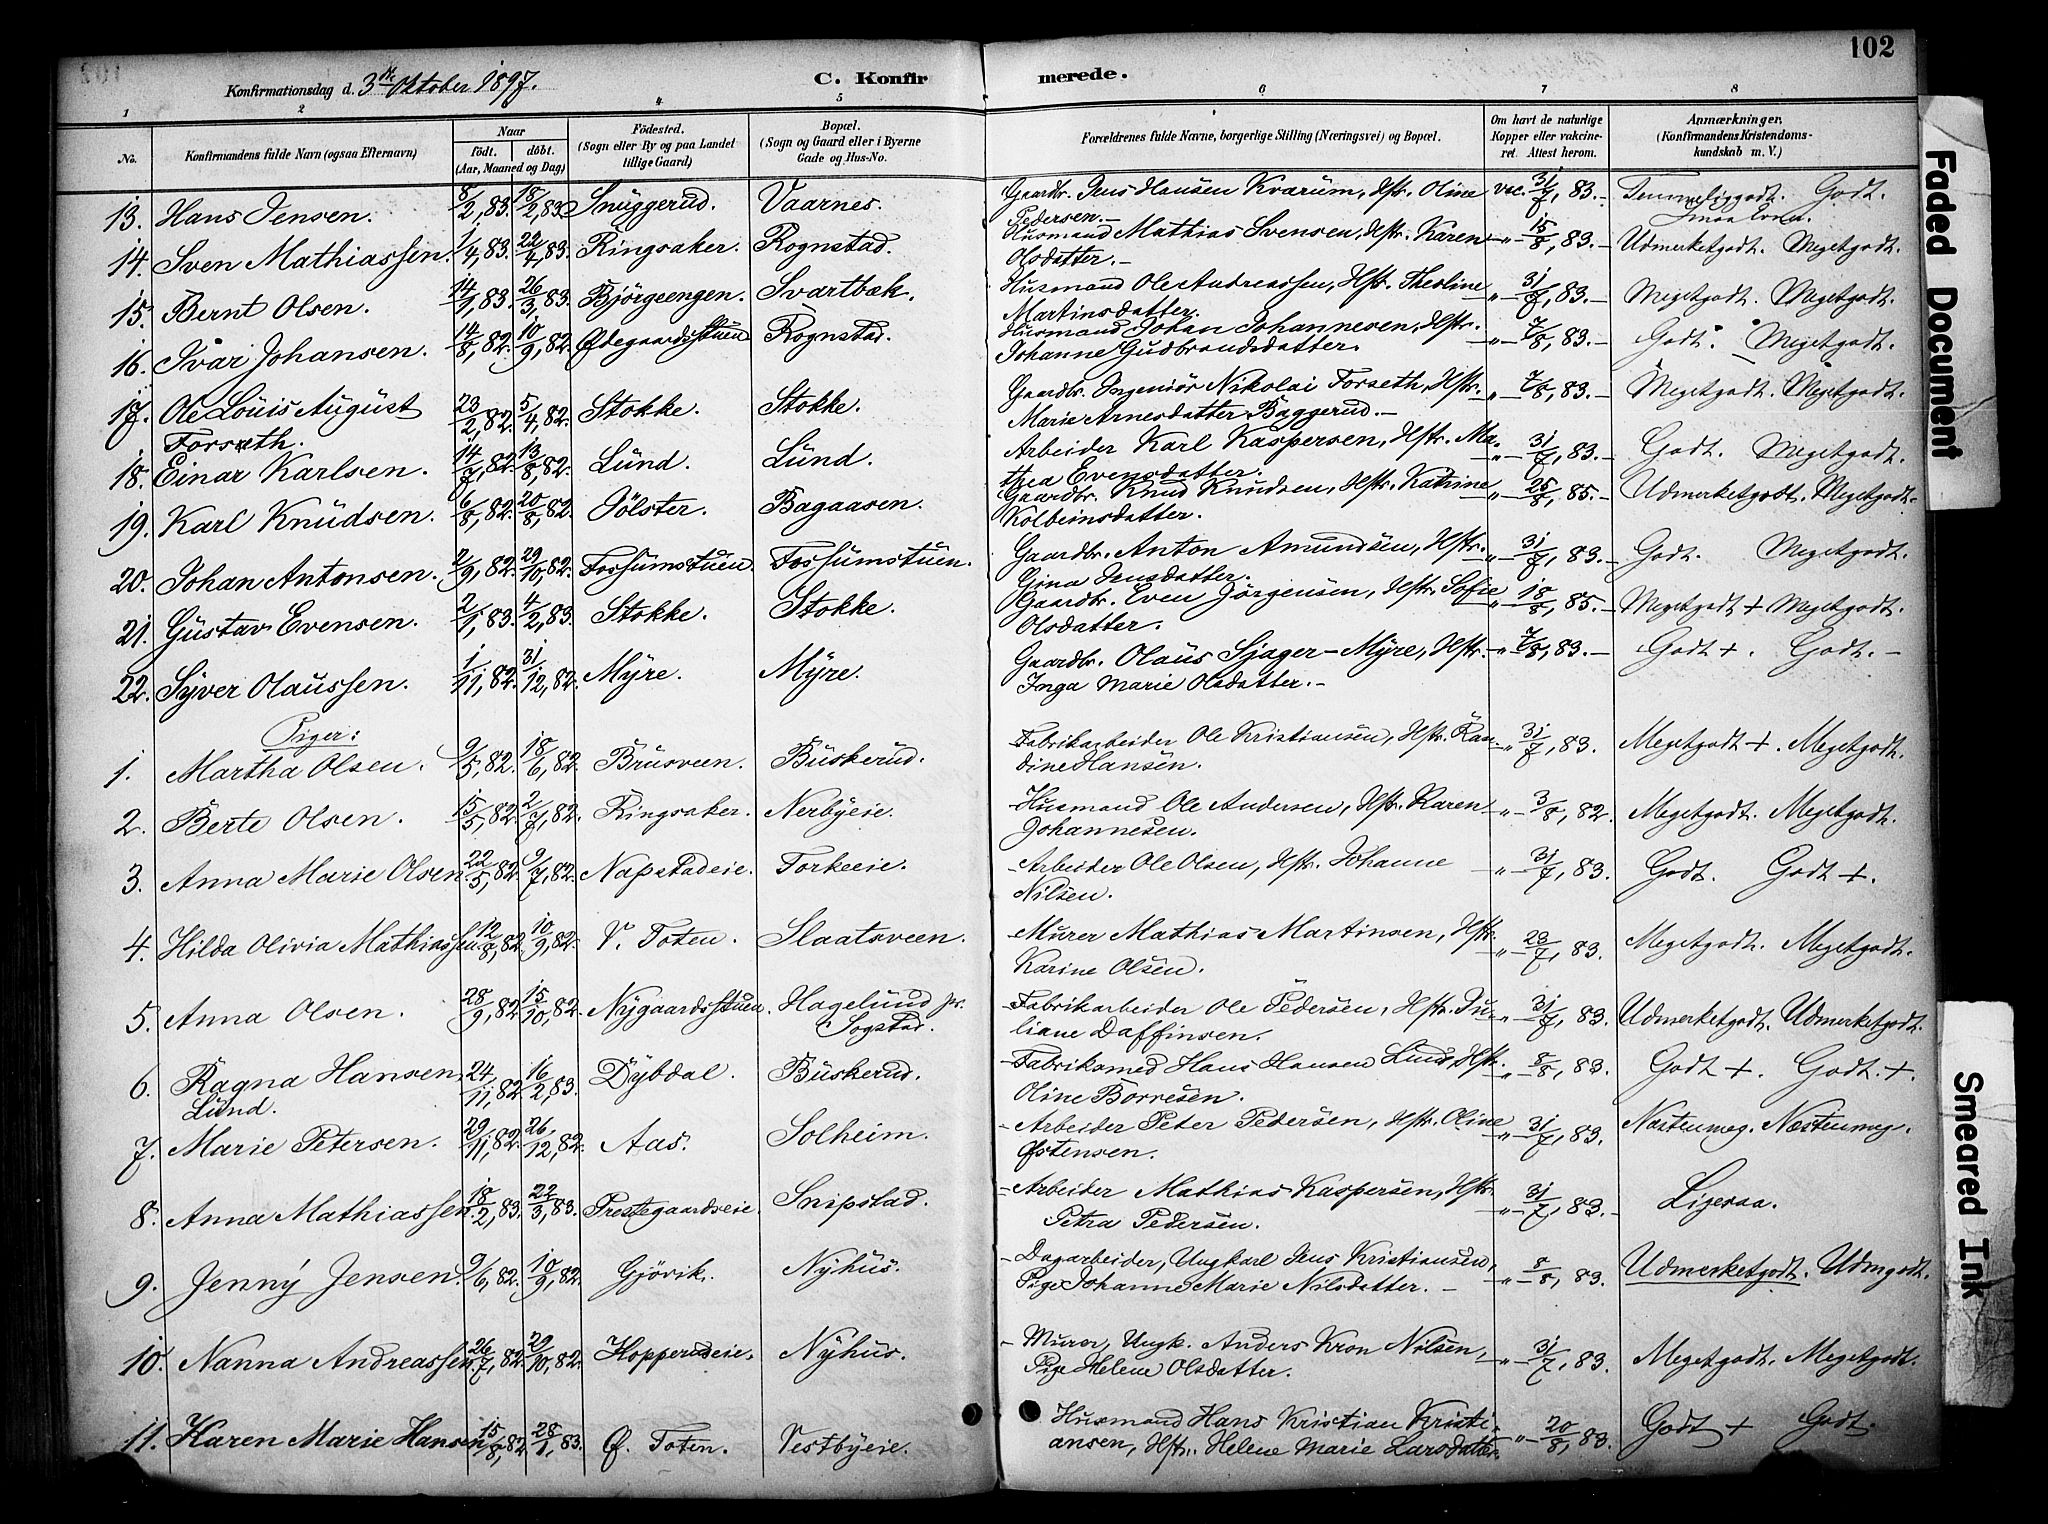 102
Konfirmationsdag d. 3die Oktober 1897.
C. Konfir merede.
1 2 4 5 6 7 8
No. Konfirmandens fulde Navn (ogsaa Efternavn) Naar Födt. döbt. (Aar, Maaned og Dag) Födested. (Sogn eller By og paa Landet tillige Gaard) Bopæl. (Sogn og Gaard eller i Byerne Gade og Hus-No. Forældrenes fulde Navne, borgerlige Stilling (Næringsvei) og Bopæl. Om havt de naturlige Kopper eller vakcineret. Attest herom. Anmærkninger. (Konfirmandens Kristendomskundskab m. V.)
13. Hans Jensen. 8/2, 83. 18/2, 83. Snuggerud. Vaarnes. Gaardbr. Jens Hansen Kvarum, Hstr. Oline Pedersen.- vac. 31/7, 83.- Temmeliggodt. Godt. Smaa Evner.
14. Sven Mathiassen. 1/4, 83. 22/4, 83. Ringsaker. Rognstad. Husmand Mathias Svensen, Hstr. Karen Olsdatter.- -"- 15/8, 83.- Udmerketgodt. Megetgodt.
15. Bernt Olsen. 14/1, 83. 26/3, 83. Bjørgeengen. Svartbæk. Husmand Ole Andreassen, Hstr. Theoline Martinsdatter. "- 31/7, 83.- Megetgodt. Megetgodt.
16. Ivar Johansen. 14/8, 82. 10/9, 82. Ødegaardsstuen Rognstad. Husmand Johan Johannesen, Hstr. Johanne Gudbrandsdatter. -"- 7/8, 83.- Godt. Megetgodt.
17. Ole Louis August Forseth. 23/2, 82. 5/4, 82. Stokke. Stokke. Gaardbr. Ingeniør Nikolai Forseth, Hstr. Marie Arnesdatter Baggerud.- -"- 7/8, 83.- Megetgodt. Megetgodt.
18. Einar Karlsen. 14/7, 82. 13/8, 82. Lund. Lund. Arbeider Karl Kaspersen, Hstr. Mathea Evensdatter. -"- 31/7, 83.- Godt. Megetgodt.
19. Karl Knudsen. 6/8, 82. 20/8, 82. Jölster. Bagaasen. Gaardbr. Knud Knudsen, Hstr. Katrine Kolbeinsdatter. "- 25/8, 85.- Udmerketgodt. Megetgodt.
20. Johan Antonsen. 2/9, 82. 29/10, 82. Fossumstuen. Fossumstuen. Gaardbr. Anton Amundsen, Hstr. Gina Jensdatter. "- 31/7, 83.- Godt. Megetgodt.
21. Gustav Evensen. 2/1, 83. 4/2, 83. Stokke. Stokke. Gaardbr. Even Jörgensen, Hstr. Sofie Olsdatter. "- 18/8, 85.- Megetgodt + Megetgodt.
22. Syver Olaussen. 1/11, 82. 31/12, 82. Myre. Myre. Gaardbr. Olaus Sjager-Myre, Hstr. Inga Marie Olsdatter.- " 7/8, 83.- Godt +. Godt.-
Piger:
1. Martha Olsen. 9/5, 82. 18/6, 82. Brusveen. Buskerud. Fabrikarbeider Ole Kristiansen, Hstr. Randine Hansen. "- 31/7, 83. Megetgodt +. Megetgodt.
2. Berte Olsen. 15/5, 82. 2/7, 82. Ringsaker. Nerbyeie. Husmand Ole Andersen, Hstr. Karen Johannesen. -"- 3/8, 82. Megetgodt. Megetgodt.
3. Anna Marie Olsen. 22/5, 82. 9/7, 82. Napstadeie. Torkeeie. Arbeider Ole Olsen, Hstr. Johanne Nilsen. "- 31/7, 83. Godt. Godt +.
4. Hilda Olivia Mathiassen 12/8, 82. 10/9, 82. V. Toten. Slaatsveen. Murer Mathias Martinsen, Hstr. Karine Olsen. -"- 23/7, 83. Megetgodt. Megetgodt.
5. Anna Olsen. 28/9, 82. 15/10, 82. Nygaardsstuen. Hagelund pr. Sogstad. Fabrikarbeider Ole Pedersen, Hstr. Juliane Daffinsen. "- 31/7, 83. Udmerketgodt. Udmerketgodt.
6. Ragna Hansen Lund. 24/11, 82. 16/2, 83. Dybdal. Buskerud. Fabriksmed Hans Hansen Lund, Hstr. Oline Borresen. "- 8/8, 83. Godt +. Godt. +.
7. Marie Petersen. 29/11, 82. 26/12, 82. Aas. Solheim. Arbeider Peter Pedersen, Hstr. Oline Østensen. "- 31/7, 83. Næstenmeg. Næstenmeg.
8. Anna Mathiassen. 18/2, 83. 22/3, 83. Prestegaardseie. Snipstad. Arbeider Mathias Kaspersen, Hstr. Petra Pedersen. "- 31/7, 83.- Ligesaa.
9. Jenny Jensen. 9/6, 82. 10/9, 82. Gjövik. Nyhus. Dagarbeider, Ungkarl Jens Kristiansen, Pige Johanne Marie Nilsdatter.- "- 8/8, 83. Udmerketgodt. Udmgodt.
10. Nanna Andreassen 26/7, 82. 29/10, 82. Hopperudeie. Nyhus. Murer, Ungk. Anders Kron Nilsen, Pige Helene Olsdatter. "- 31/7, 83. Megetgodt. Megetgodt.
11. Karen Marie Hansen 15/8, 82. 28/1, 83. Ø. Toten. Vestbyeie. Husmand Hans Kristian Kristiansen, Hstr. Helene Marie Larsdatter. "- 20/8, 83. Godt + Godt.
Faded Document
Smeared Ink